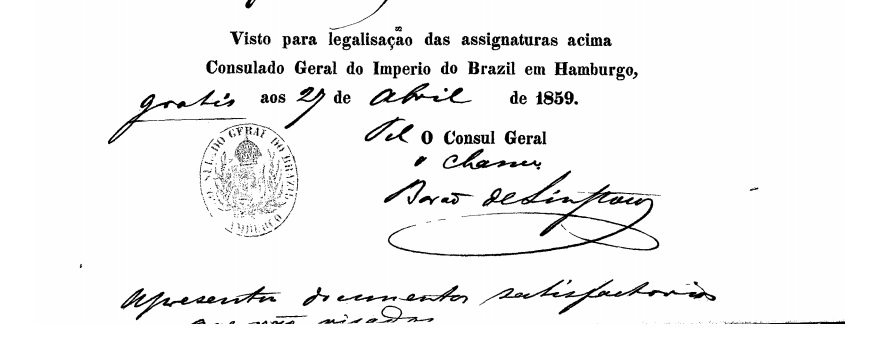 Visto para legalisação das assignaturas acima
Consulado Geral do Imperio do Brazil em Hamburgo,
gratis aos 27 de Abril de 1859.
Pel O Consul Geral
o Chanc.
Barão de
CONSUL. DO GERAL DO BRAZIL
HAMBURGO
Apresentou documentos satisfactorios
que vão visados